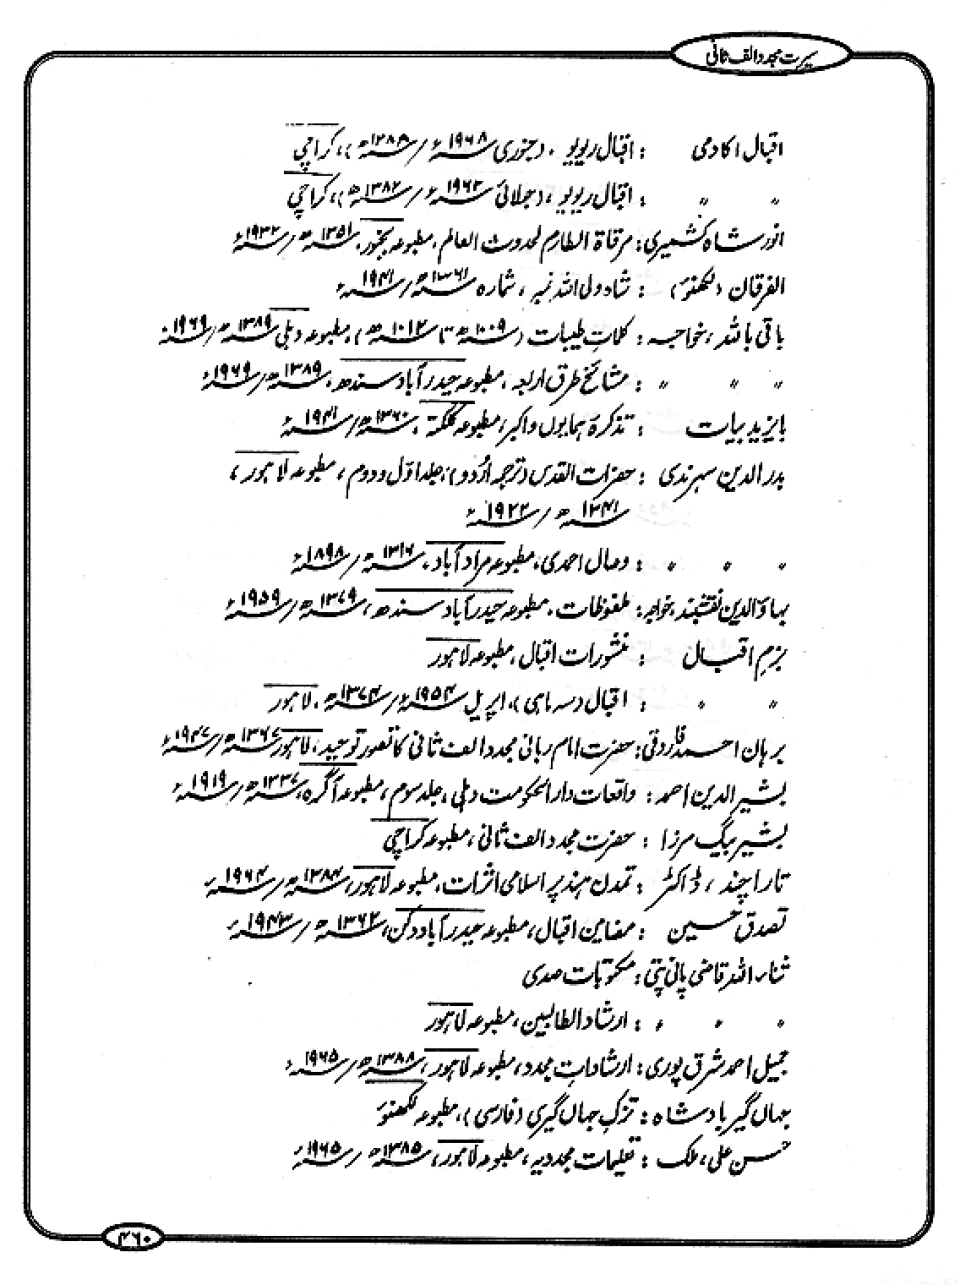 سیرت مجدد الف ثانی
اقبال اکادمی : اقبال ریویو ، (جنوری ۱۹۶۸ء / ۱۳۸۸ھ)، کراچی
〃 〃 : اقبال ریویو، (جولائی ۱۹۶۲ء / ۱۳۸۲ھ)، کراچی
انور شاہ کشمیری: مرقاۃ الطارم لحدوث العالم، مطبوعہ بجنور، ۱۳۵۱ھ / ۱۹۳۲ء
الفرقان (لکھنؤ) : شاہ ولی اللہ نمبر، شمارہ ۱۳۶۱ھ / ۱۹۴۱ء
باقی باللہ، خواجہ : کلمات طیبات (۱۰۰۹ھ تا ۱۰۱۲ھ)، مطبوعہ دہلی ۱۳۸۹ھ / ۱۹۶۹ء
〃 〃 〃 : مشائخ طرق اربعہ، مطبوعہ حیدرآباد سندھ، ۱۳۸۹ھ / ۱۹۶۹ء
بایزید بیات : تذکرۃ ہمایوں و اکبر، مطبوعہ کلکتہ، ۱۳۶۰ھ / ۱۹۴۱ء
بدر الدین سہرندی : حضرات القدس (ترجمہ اُردو)، جلد اوّل و دوم، مطبوعہ لاہور،
۱۳۴۱ھ / ۱۹۲۲ء
〃 〃 〃 : وصال احمدی، مطبوعہ مراد آباد، ۱۳۱۶ھ / ۱۸۹۸ء
بہاؤ الدین نقشبند، خواجہ: ملفوظات، مطبوعہ حیدرآباد سندھ، ۱۳۷۹ھ / ۱۹۵۹ء
بزم اقبال : منشورات اقبال، مطبوعہ لاہور
〃 〃 : اقبال (سہ ماہی)، اپریل ۱۹۵۴ء / ۱۳۷۴ھ، لاہور
برہان احمد فاروقی: حضرت امام ربانی مجدد الف ثانی کا تصور توحید، لاہور ۱۳۶۷ھ / ۱۹۴۷ء
بشیر الدین احمد : واقعات دار الحکومت دہلی، جلد سوم، مطبوعہ آگرہ، ۱۳۳۷ھ / ۱۹۱۹ء
بشیر بیگ مرزا : حضرت مجدد الف ثانی، مطبوعہ کراچی
تارا چند، ڈاکٹر : تمدن ہند پر اسلامی اثرات، مطبوعہ لاہور، ۱۳۸۴ھ / ۱۹۶۴ء
تصدق حسین : مضامین اقبال، مطبوعہ حیدرآباد دکن، ۱۳۶۲ھ / ۱۹۴۳ء
ثناء اللہ قاضی پانی پتی: مکتوبات صدی
〃 〃 〃 : ارشاد الطالبین، مطبوعہ لاہور
جمیل احمد شرق پوری: ارشادات مجدد، مطبوعہ لاہور، ۱۳۸۸ھ / ۱۹۶۵ء
جہاں گیر بادشاہ : تزک جہاں گیری (فارسی)، مطبوعہ لکھنؤ
حسن علی، ملک : تعلیمات مجددیہ، مطبوعہ لاہور، ۱۳۸۵ھ / ۱۹۶۵ء
۴۶۰